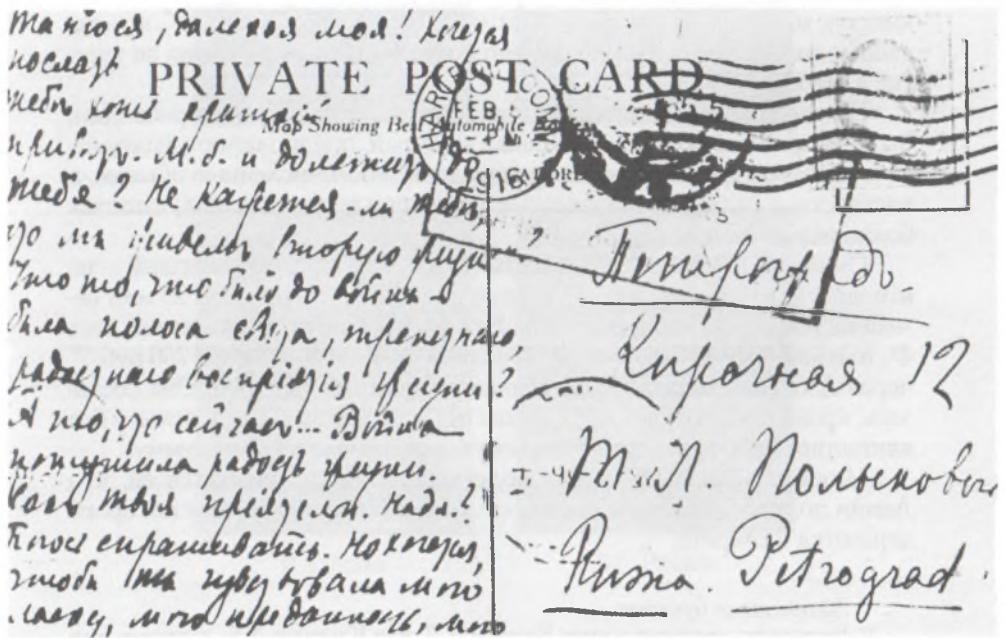 Танюся, далекая моя! Хочется
послать
тебѣ хотя краткій
привѣт. М.б. и долетит до
тебя? Не кажется-ли тебѣ,
что мы живемъ вторую жизнь?
Что то, что было до войны —
была полоса свѣта, трепетнаго,
радостнаго воспріятія жизни?
А то, что сейчасъ... Война
потушила радость жизни.
Какъ твоя пріятельн. Надя?
Боюсь спрашивать. Но хочется,
чтобы ты чувствовала мою
ласку, мою преданность, мою
PRIVATE POST CARD
Map Showing Best Automobile Routes
HAR CON
FEB
PM
1916
Петроградъ.
Кирочная 12
Т. Л. Поляковой
Russia. Petrograd.